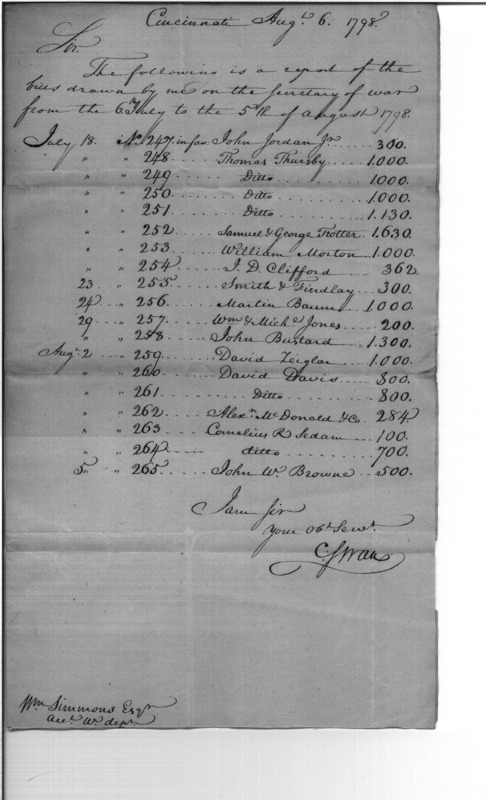 Cincinnati Augt. 6. 1798.
Sir.
The following is a report of the
bills drawn by me on the secretary of war
from the 6. July to the 5th. of august 1798.
July 18. No. 247. in fav. John Jordan Jr. ..... 300.
" " 248 ..... Thomas Thursby ..... 1.000.
" " 249 ..... Ditto ..... 1000.
" " 250 ..... Ditto ..... 1.000.
" " 251 ..... Ditto ..... 1.130.
" " 252 ..... Samuel & George Trotter 1.630.
" " 253 ..... William Morton 1.000.
" " 254 ..... J. D. Clifford ..... 362
23 " 255 ..... Smith & Findlay ..... 300.
24 " 256 ..... Martin Baum ..... 1.000.
29 " 257 ..... Wm. & Michl. Jones ..... 200.
" " 258 ..... John Bustard ..... 1.300.
Augt. 2 " 259 ..... David Zeiglar ..... 1.000.
" " 260 ..... David Davis ..... 800.
" " 261 ..... Ditto ..... 800.
" " 262 ..... Alexr. McDonald & Co. 284.
" " 263 ..... Cornelius R. Sedam ..... 100.
" " 264 ..... ditto ..... 700.
5 " " 265 ..... John W. Browne ..... 500.
I am Sir
Your Obt. Servt.
C. Swan
Wm. Simmons Esqr.
acct. Wr. dept.